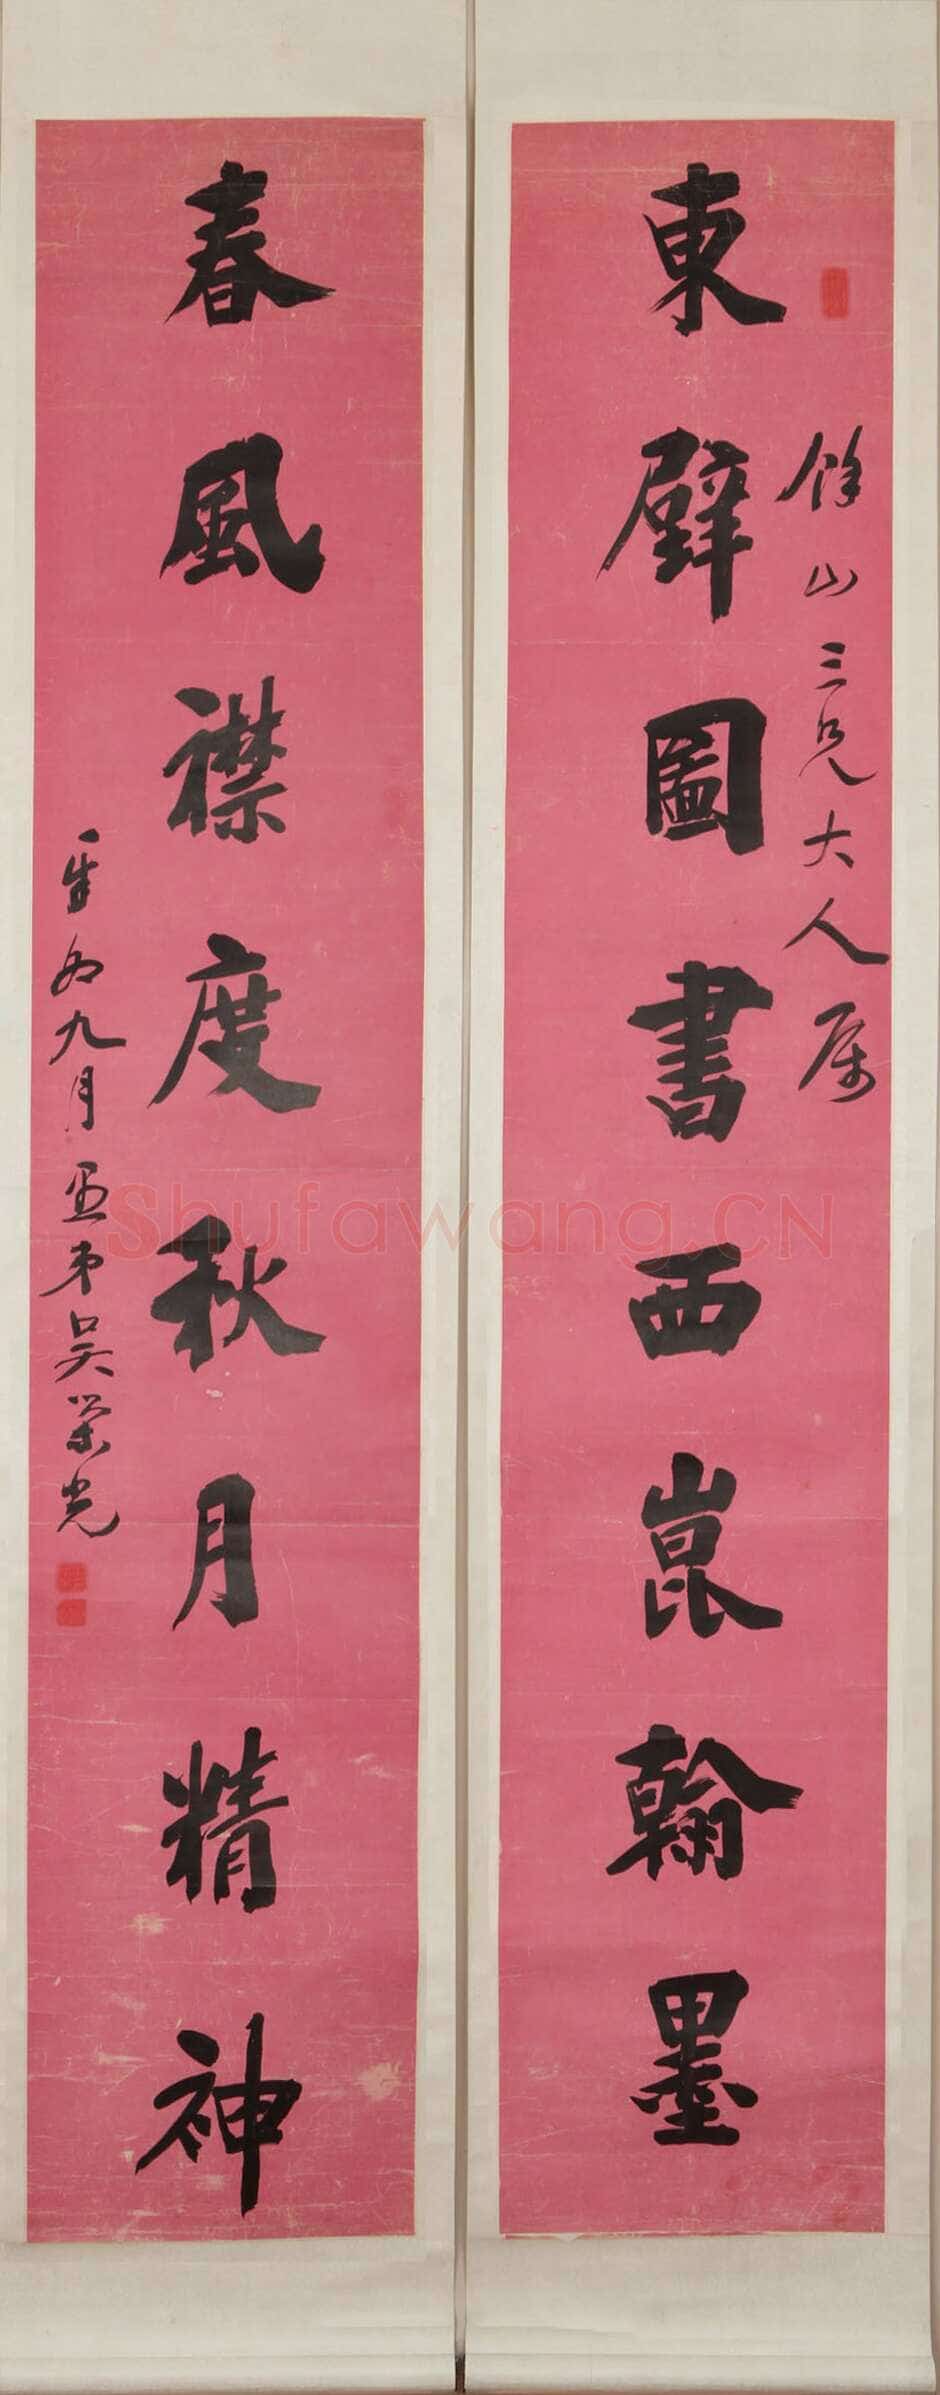 東壁圖書西崑翰墨
餘山三兄大人属
春風襟度秋月精神
九月愚弟吳榮光
Shufawang.CN